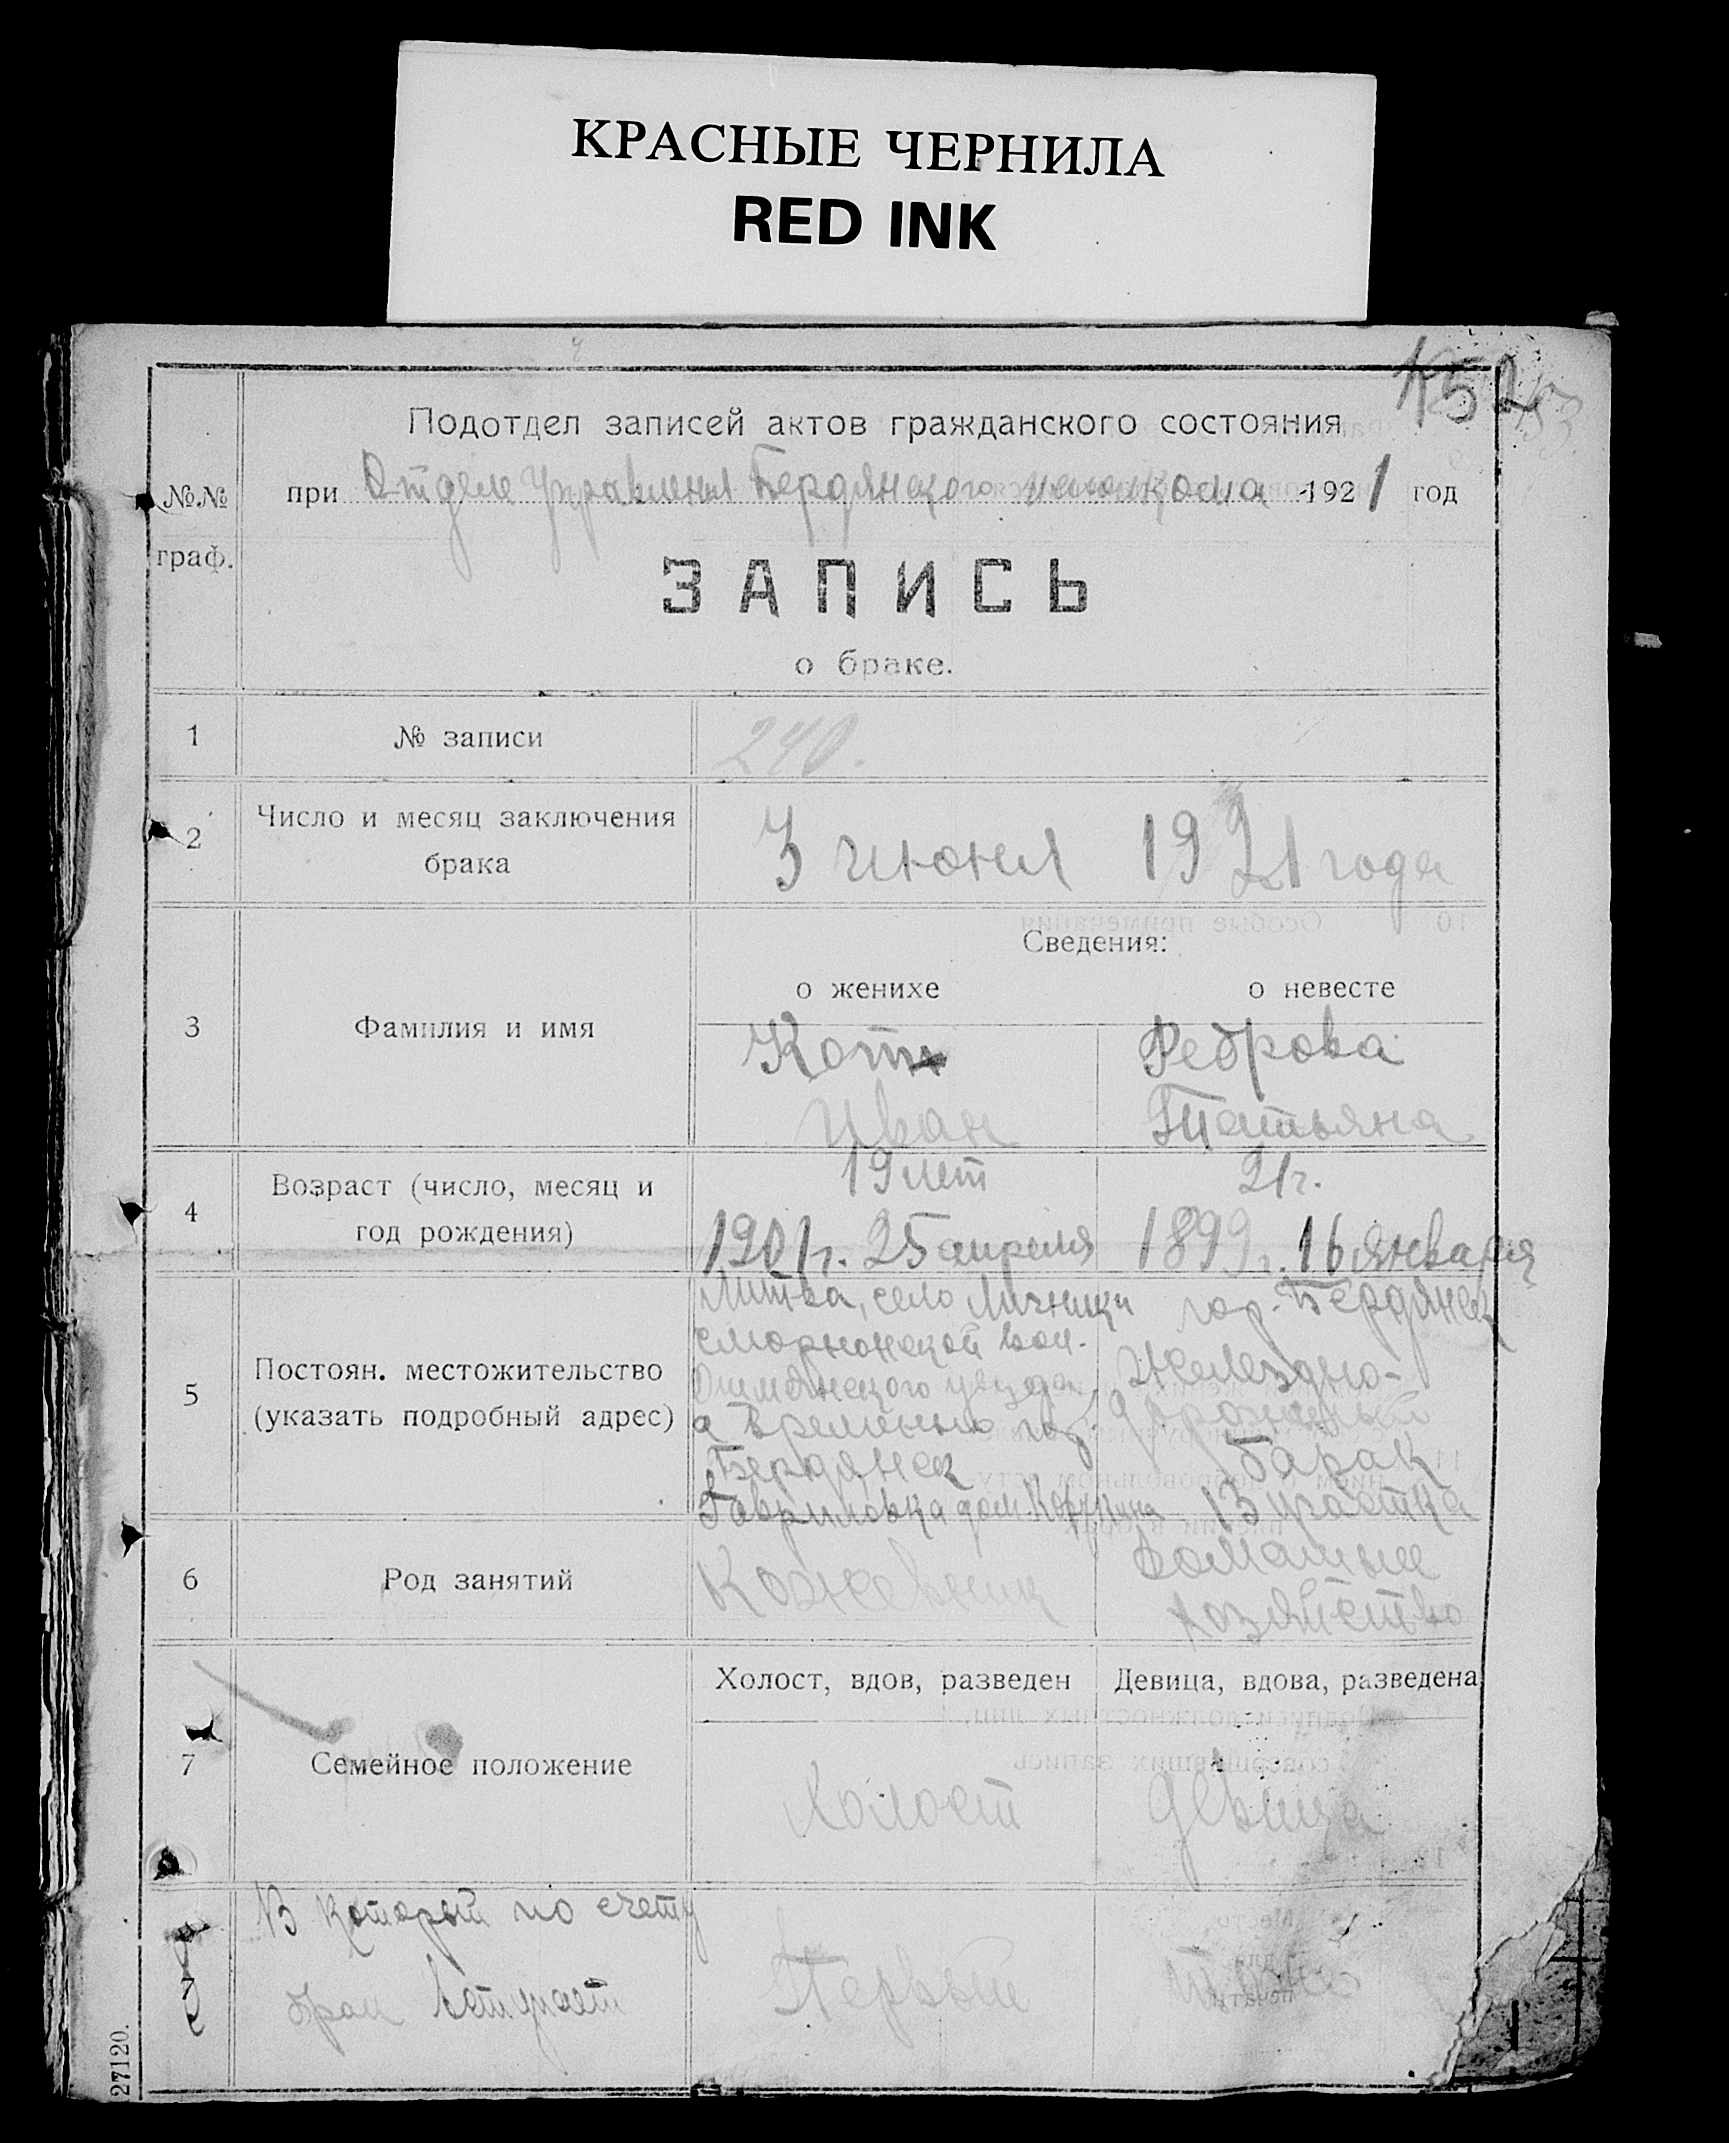 КРАСНЫЕ ЧЕРНИЛА
RED INK
152
Подотдел записей актов гражданского состояния
№№ граф.
при Отделе Управления Бердянского исполкома 1921 год
ЗАПИСЬ
о браке.
1 № записи 240.
2 Число и месяц заключения
брака
3 июня 1921 года
Сведения:
о женихе о невесте
3 Фамилия и имя
Кот Реброва
Иван Татьяна
4 Возраст (число, месяц и
год рождения)
19 лет 21 г.
1901 г. 25 апреля 1899 г. 16 января
5 Постоян. местожительство
(указать подробный адрес)
Литва, село
вол.
Ошмянского уезда
а временно гор.
Бердянск
Гавриловка дом
гор. Бердянск
Железно-
дорожный
барак
13 участка
6 Род занятий
Кожевник
Домашнее
хозяйство
Холост, вдов, разведен Девица, вдова, разведена
7 Семейное положение
Холост девица
В который по счету
брак вступает
Первый
27120.